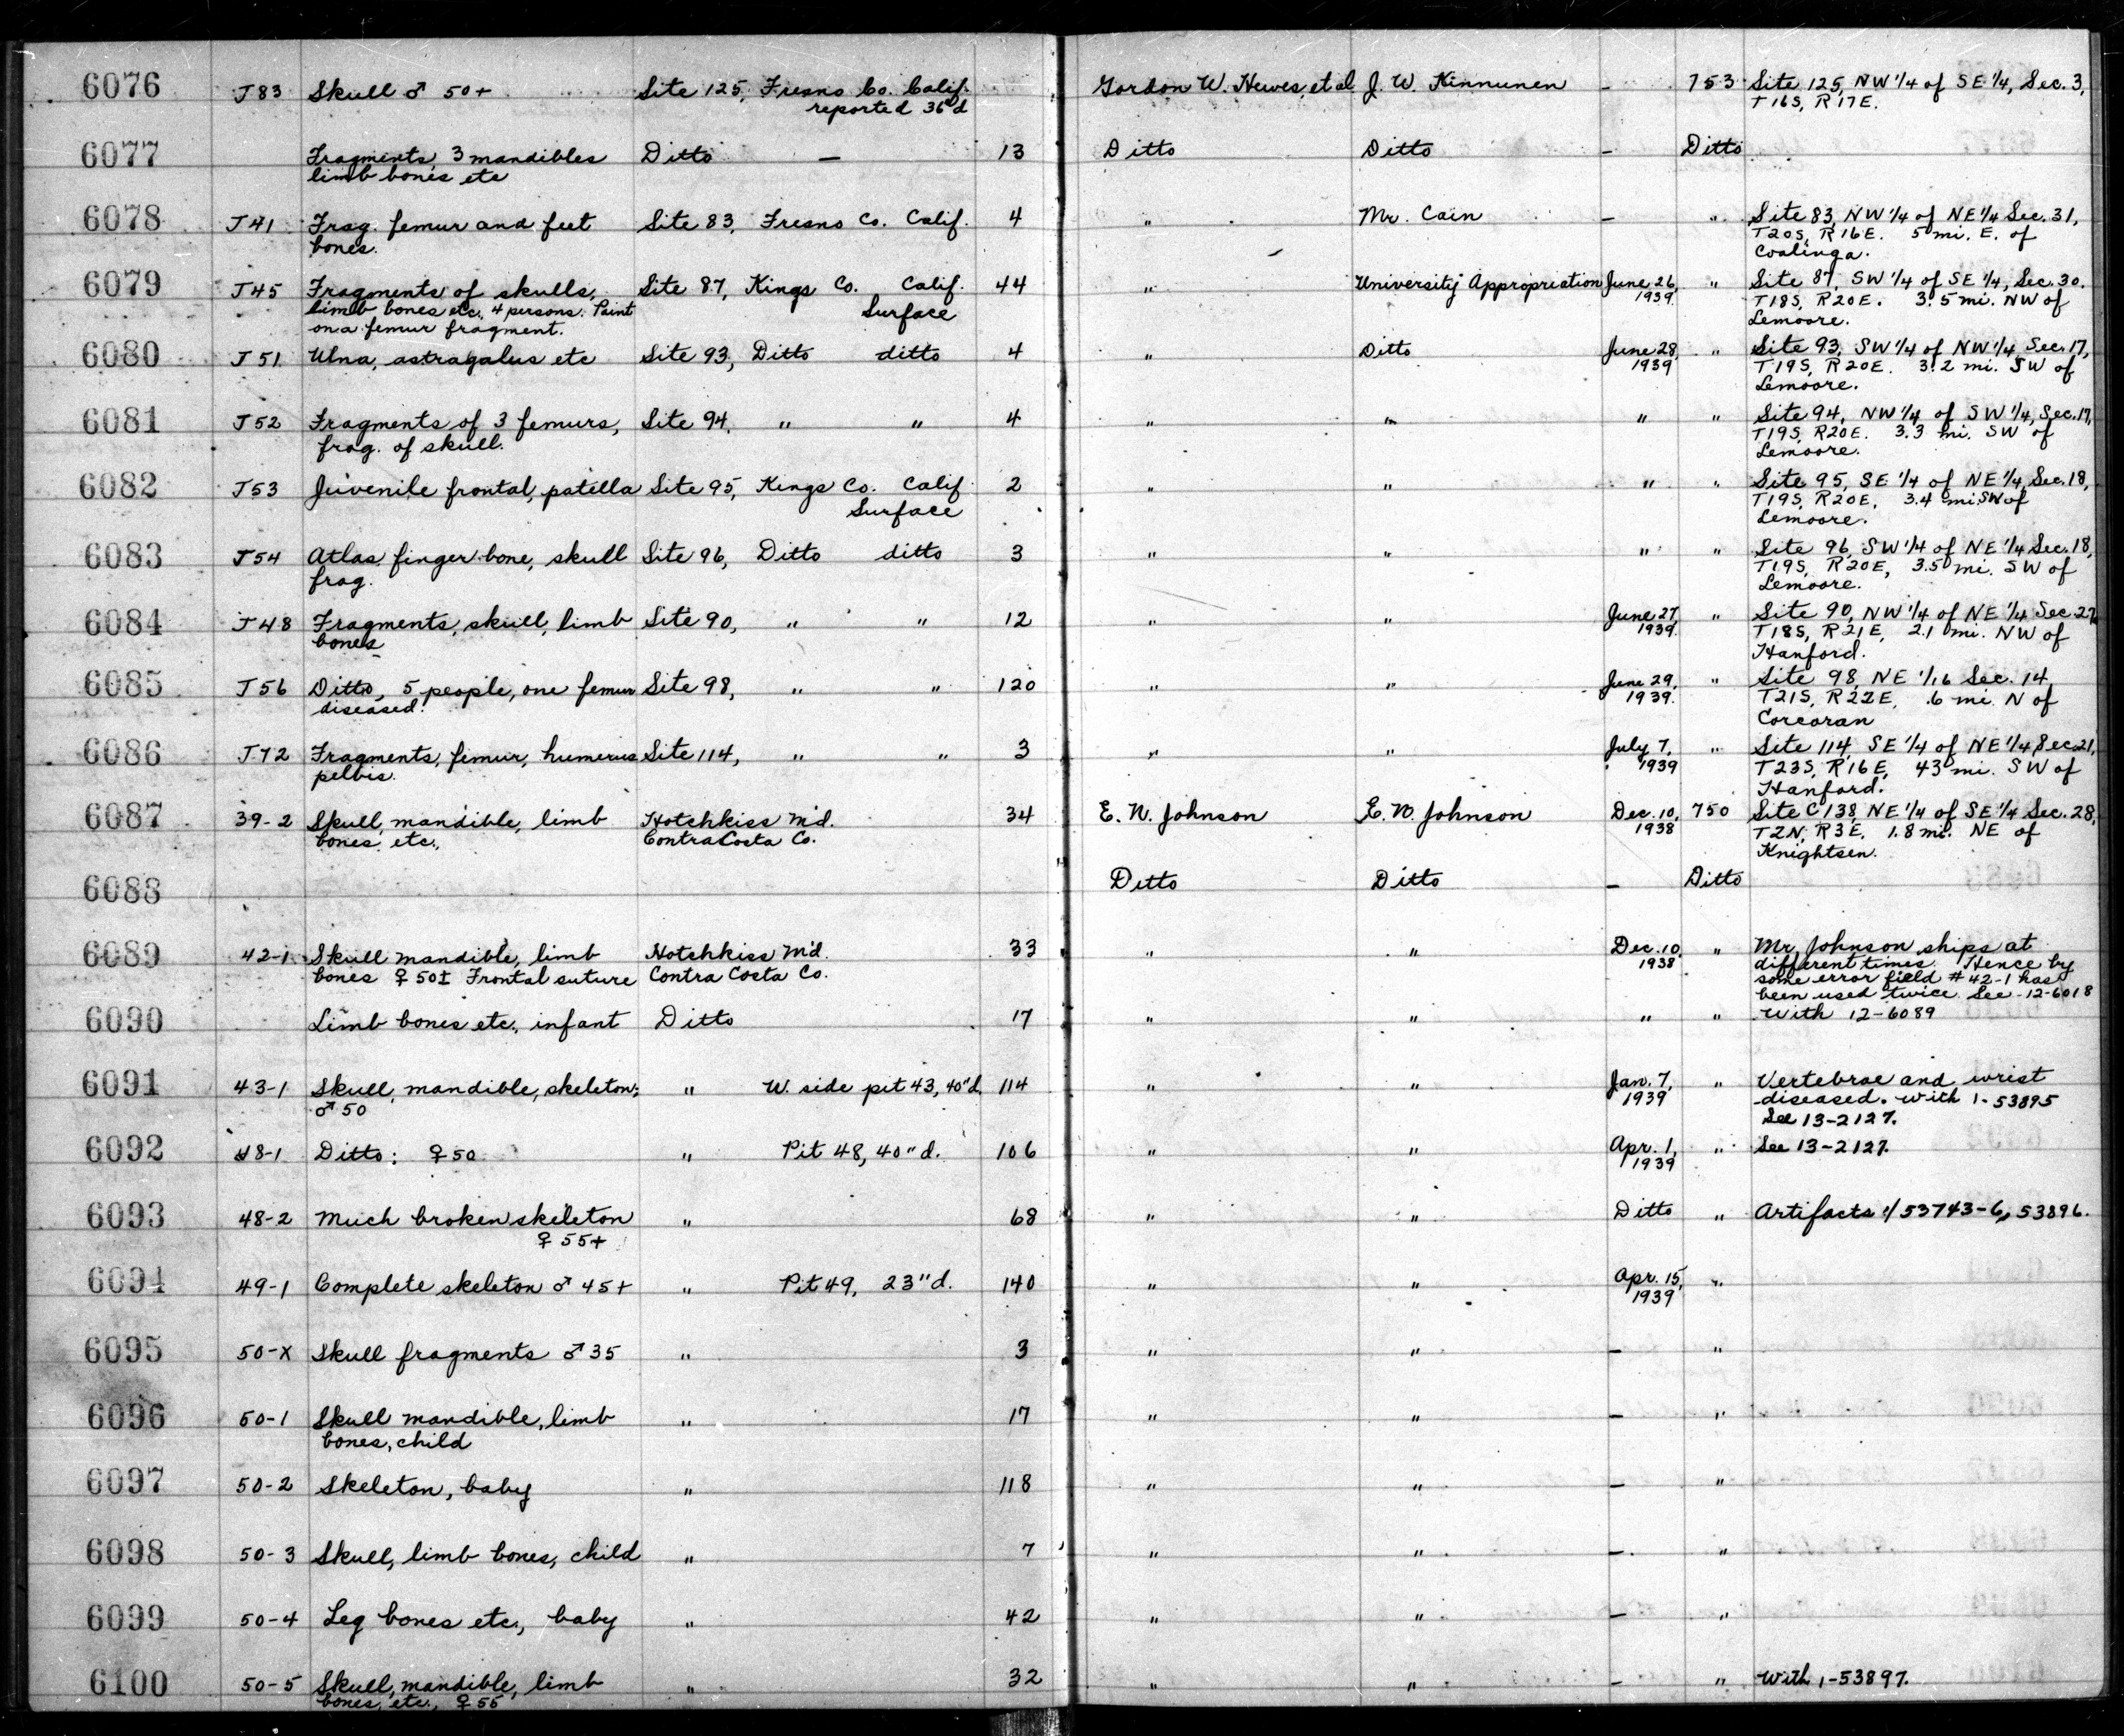 6076 J83 Skull ♂ 50+ Site 125, Fresno Co. Calif. Gordon W. Hewes, et al J. W. Kinnunen – 753 Site 125, NW 1/4 of SE 1/4, Sec. 3,
reported 36"d T16S, R17E.
6077 Fragments, 3 mandibles Ditto – 13 Ditto Ditto – Ditto
limb bones etc
6078 J41 Frag. femur and feet Site 83, Fresno Co. Calif. 4 " Mr. Cain – " Site 83, NW 1/4 of NE 1/4 Sec. 31,
bones. T20S, R16E. 5 mi. E. of
Coalinga.
6079 J45 Fragments of skulls, Site 87, Kings Co. Calif. 44 " University Appropriation June 26, " Site 87, SW 1/4 of SE 1/4, Sec. 30.
limb bones etc., 4 persons. Paint Surface 1939. T18S, R20E. 3.5 mi. NW of
on a femur fragment. Lemoore.
6080 J51. Ulna, astragalus etc Site 93, Ditto ditto 4 " Ditto June 28, " Site 93, SW 1/4 of NW 1/4 Sec. 17,
1939 T19S, R20E. 3.2 mi. SW of
Lemoore.
6081 J52 Fragments of 3 femurs, Site 94, " " 4 " " " " Site 94, NW 1/4 of SW 1/4, Sec. 17,
frag. of skull. T19S, R20E. 3.3 mi. SW of
Lemoore.
6082 J53 Juvenile frontal, patella Site 95, Kings Co. Calif 2 " " " " Site 95, SE 1/4 of NE 1/4, Sec. 18,
Surface T19S, R20E, 3.4 mi SW of
Lemoore.
6083 J54 Atlas, finger bone, skull Site 96, Ditto ditto 3 " " " " Site 96, SW 1/4 of NE 1/4 Sec. 18,
frag. T19S, R20E, 3.5 mi. SW of
Lemoore.
6084 J48 Fragments, skull, limb Site 90, " " 12 " " June 27, " Site 90, NW 1/4 of NE 1/4 Sec 27,
bones 1939. T18S, R21E, 2.1 mi. NW of
Hanford.
6085 J56 Ditto, 5 people, one femur Site 98, " " 120 " " June 29, " Site 98, NE 1/16 Sec. 14,
diseased. 1939. T21S, R22E, .6 mi. N of
Corcoran
6086 J72 Fragments, femur, humerus Site 114, " " 3 " " July 7, " Site 114, SE 1/4 of NE 1/4, Sec 21,
pelvis. 1939 T23S, R16E, 43 mi. SW of
Hanford.
6087 39-2 Skull, mandible, limb Hotchkiss M'd. 34 E. N. Johnson E. N. Johnson Dec. 10, 750 Site C138, NE 1/4 of SE 1/4 Sec. 28,
bones, etc., Contra Costa Co. 1938 T2N, R3E, 1.8 mi. NE of
Knightsen.
6088 Ditto Ditto – Ditto
6089 42-1 Skull mandible, limb Hotchkiss M'd. 33 " " Dec. 10, " Mr. Johnson ships at
bones ♀ 50± Frontal suture Contra Costa Co. 1938 different times. Hence by
some error field # 42-1 has
been used twice. See 12-6018
6090 Limb bones etc., infant Ditto 17 " " " " With 12-6089
6091 43-1 Skull, mandible, skeleton; " W. side pit 43, 40"d. 114 " " Jan. 7, " Vertebrae and wrist
♂ 50 1939 diseased. With 1-53895
See 13-2127.
6092 48-1 Ditto: ♀ 50 " Pit 48, 40"d. 106 " " Apr. 1, " See 13-2127.
1939
6093 48-2 Much broken skeleton " 68 " " Ditto " Artifacts 1/53743-6, 53896.
♀ 55+
6094 49-1 Complete skeleton ♂ 45+ " Pit 49, 23"d. 140 " " Apr. 15, "
1939
6095 50-X Skull fragments ♂ 35 " 3 " " – "
6096 50-1 Skull mandible, limb " 17 " " – "
bones, child
6097 50-2 Skeleton, baby " 118 " " – "
6098 50-3 Skull, limb bones, child " 7 " " – "
6099 50-4 Leg bones etc., baby " 42 " " – "
6100 50-5 Skull, mandible, limb " 32 " " – " With 1-53897.
bones, etc., ♀ 55